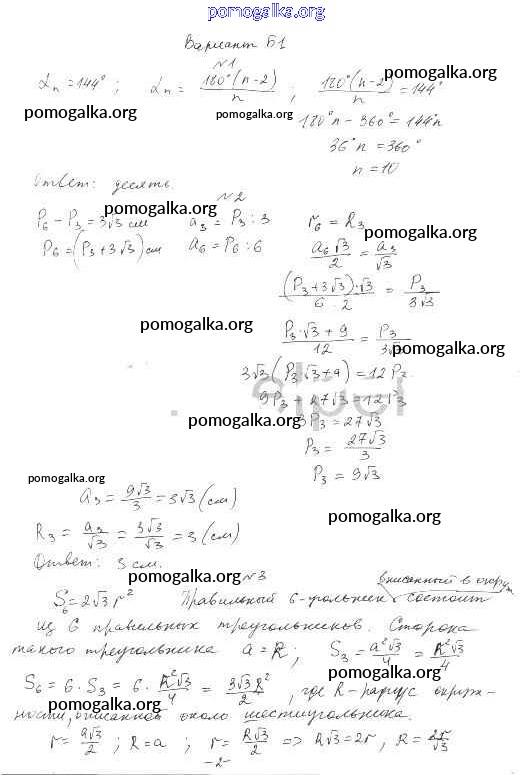 pomogalka.org
Вариант Б1
№1
αₙ = 144°; αₙ = 180°(n-2)/n; 180°(n-2)/n = 144°
pomogalka.org
pomogalka.org
pomogalka.org
180°n - 360° = 144°n
36°n = 360°
n = 10
Ответ: десять.
№2
P₆ - P₃ = 3√3 см a₃ = P₃ : 3 r₆ = R₃
pomogalka.org
P₆ = (P₃ + 3√3) см a₆ = P₆ : 6 a₆√3/2 = a₃/√3
pomogalka.org
(P₃ + 3√3)·√3/6·2 = P₃/3√3
pomogalka.org
P₃·√3 + 9/12 = P₃/3√3
pomogalka.org
3√3(P₃·√3 + 9) = 12P₃
9P₃ + 27√3 = 12P₃
pomogalka.org
3P₃ = 27√3
P₃ = 27√3/3
P₃ = 9√3
pomogalka.org
a₃ = 9√3/3 = 3√3 (см)
pomogalka.org
R₃ = a₃/√3 = 3√3/√3 = 3 (см)
Ответ: 3 см.
pomogalka.org
№3
вписанный в окруж
S₆ = 2√3 r² Правильный 6-угольник состоит
pomogalka.org
из 6 правильных треугольников. Сторона
такого треугольника a = R; S₃ = a²√3/4 = R²√3/4
pomogalka.org
pomogalka.org
S₆ = 6·S₃ = 6·R²√3/4 = 3√3R²/2, где R-радиус окруж-
ности, описанной около шестиугольника.
pomogalka.org
r = a√3/2; R = a; r = R√3/2 => R√3 = 2r, R = 2r/√3
-2-